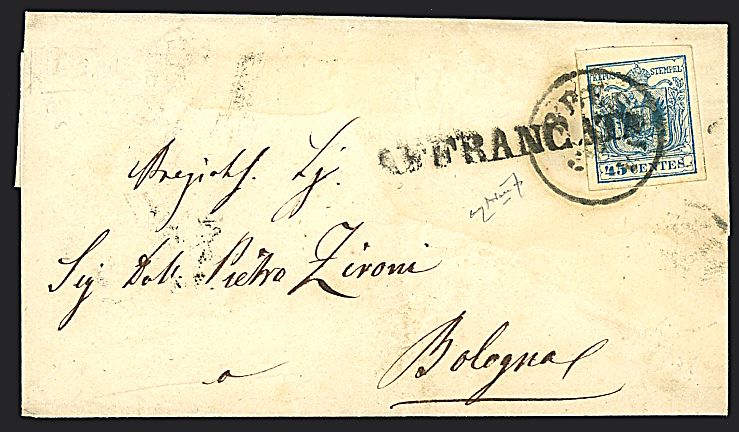 KKPOST STEMPEL
45 CENTES.
AFFRANCATA
Pregiat. Sj.
Sig Dott. Pietro Zironi
a
Bologna